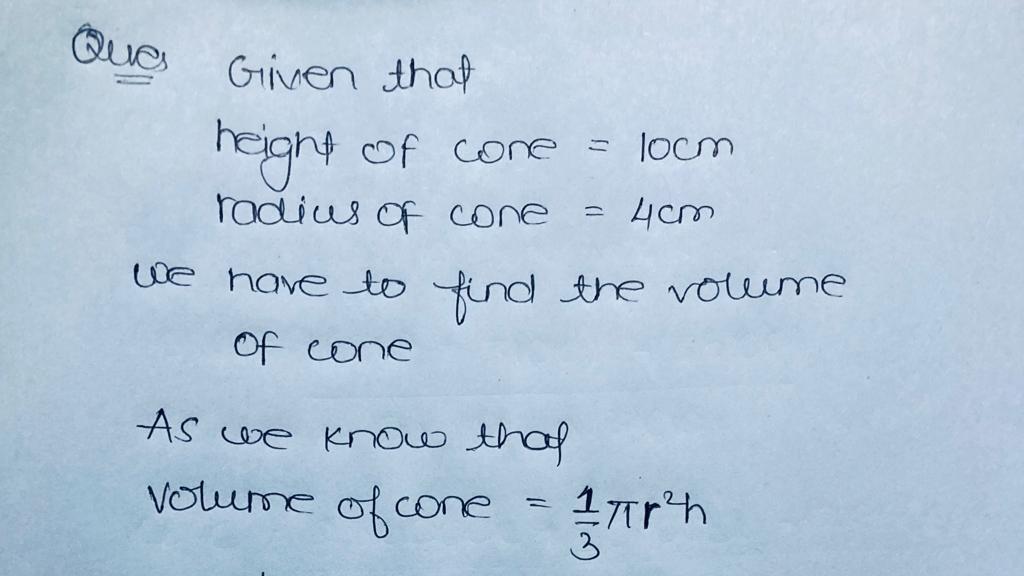 Ques Given that
height of cone = 10cm
radius of cone = 4cm
we have to find the volume
of cone
As we know that
volume of cone = 1/3 πr²h